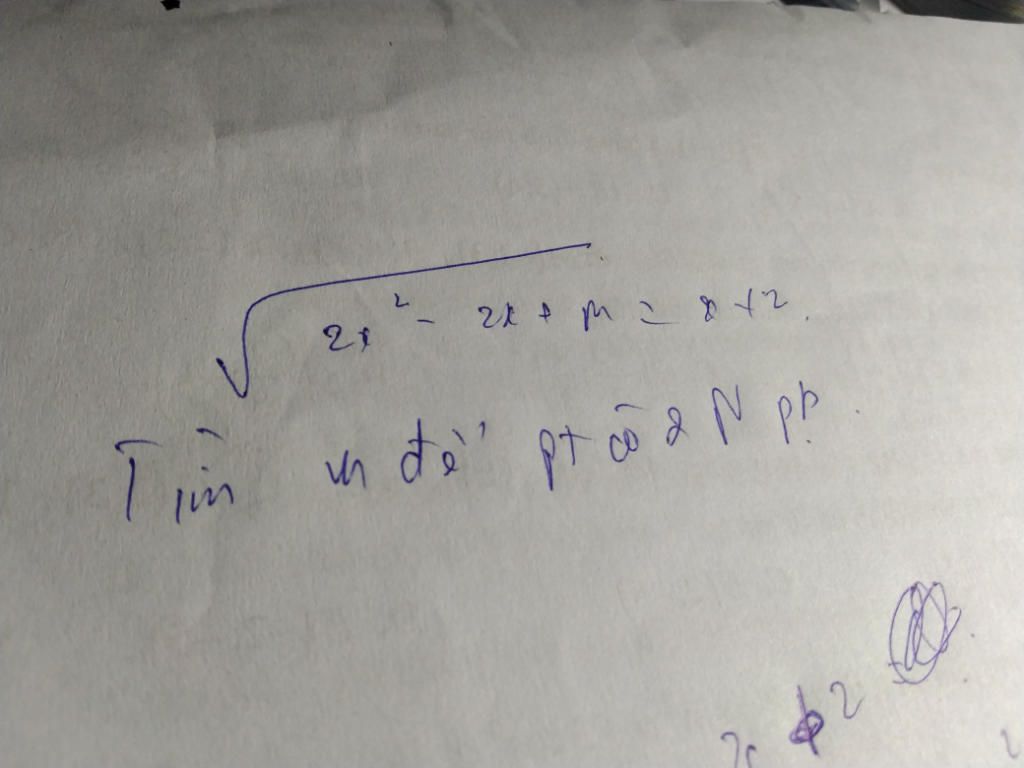 √(2x² - 2x + m) = x + 2.
Tìm m để pt có 2 N pb.